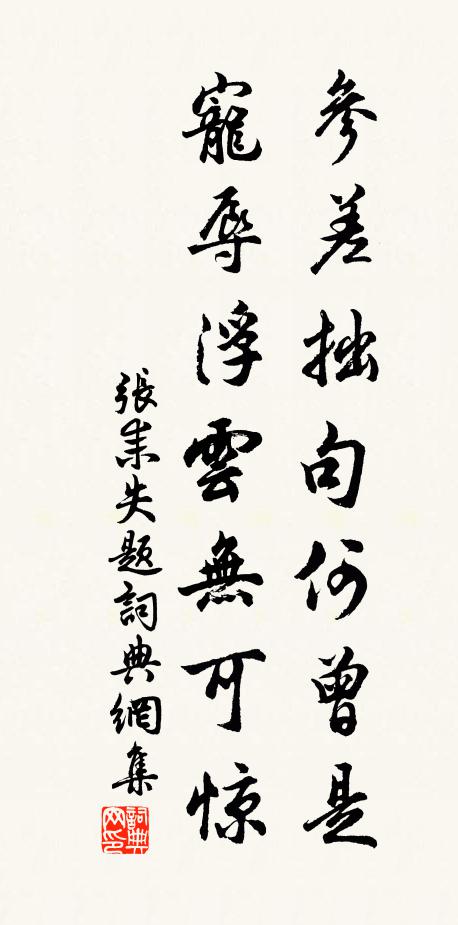 參差拙句何曾是
寵辱浮雲無可惊
張耒失題詞典網集
詞典网印